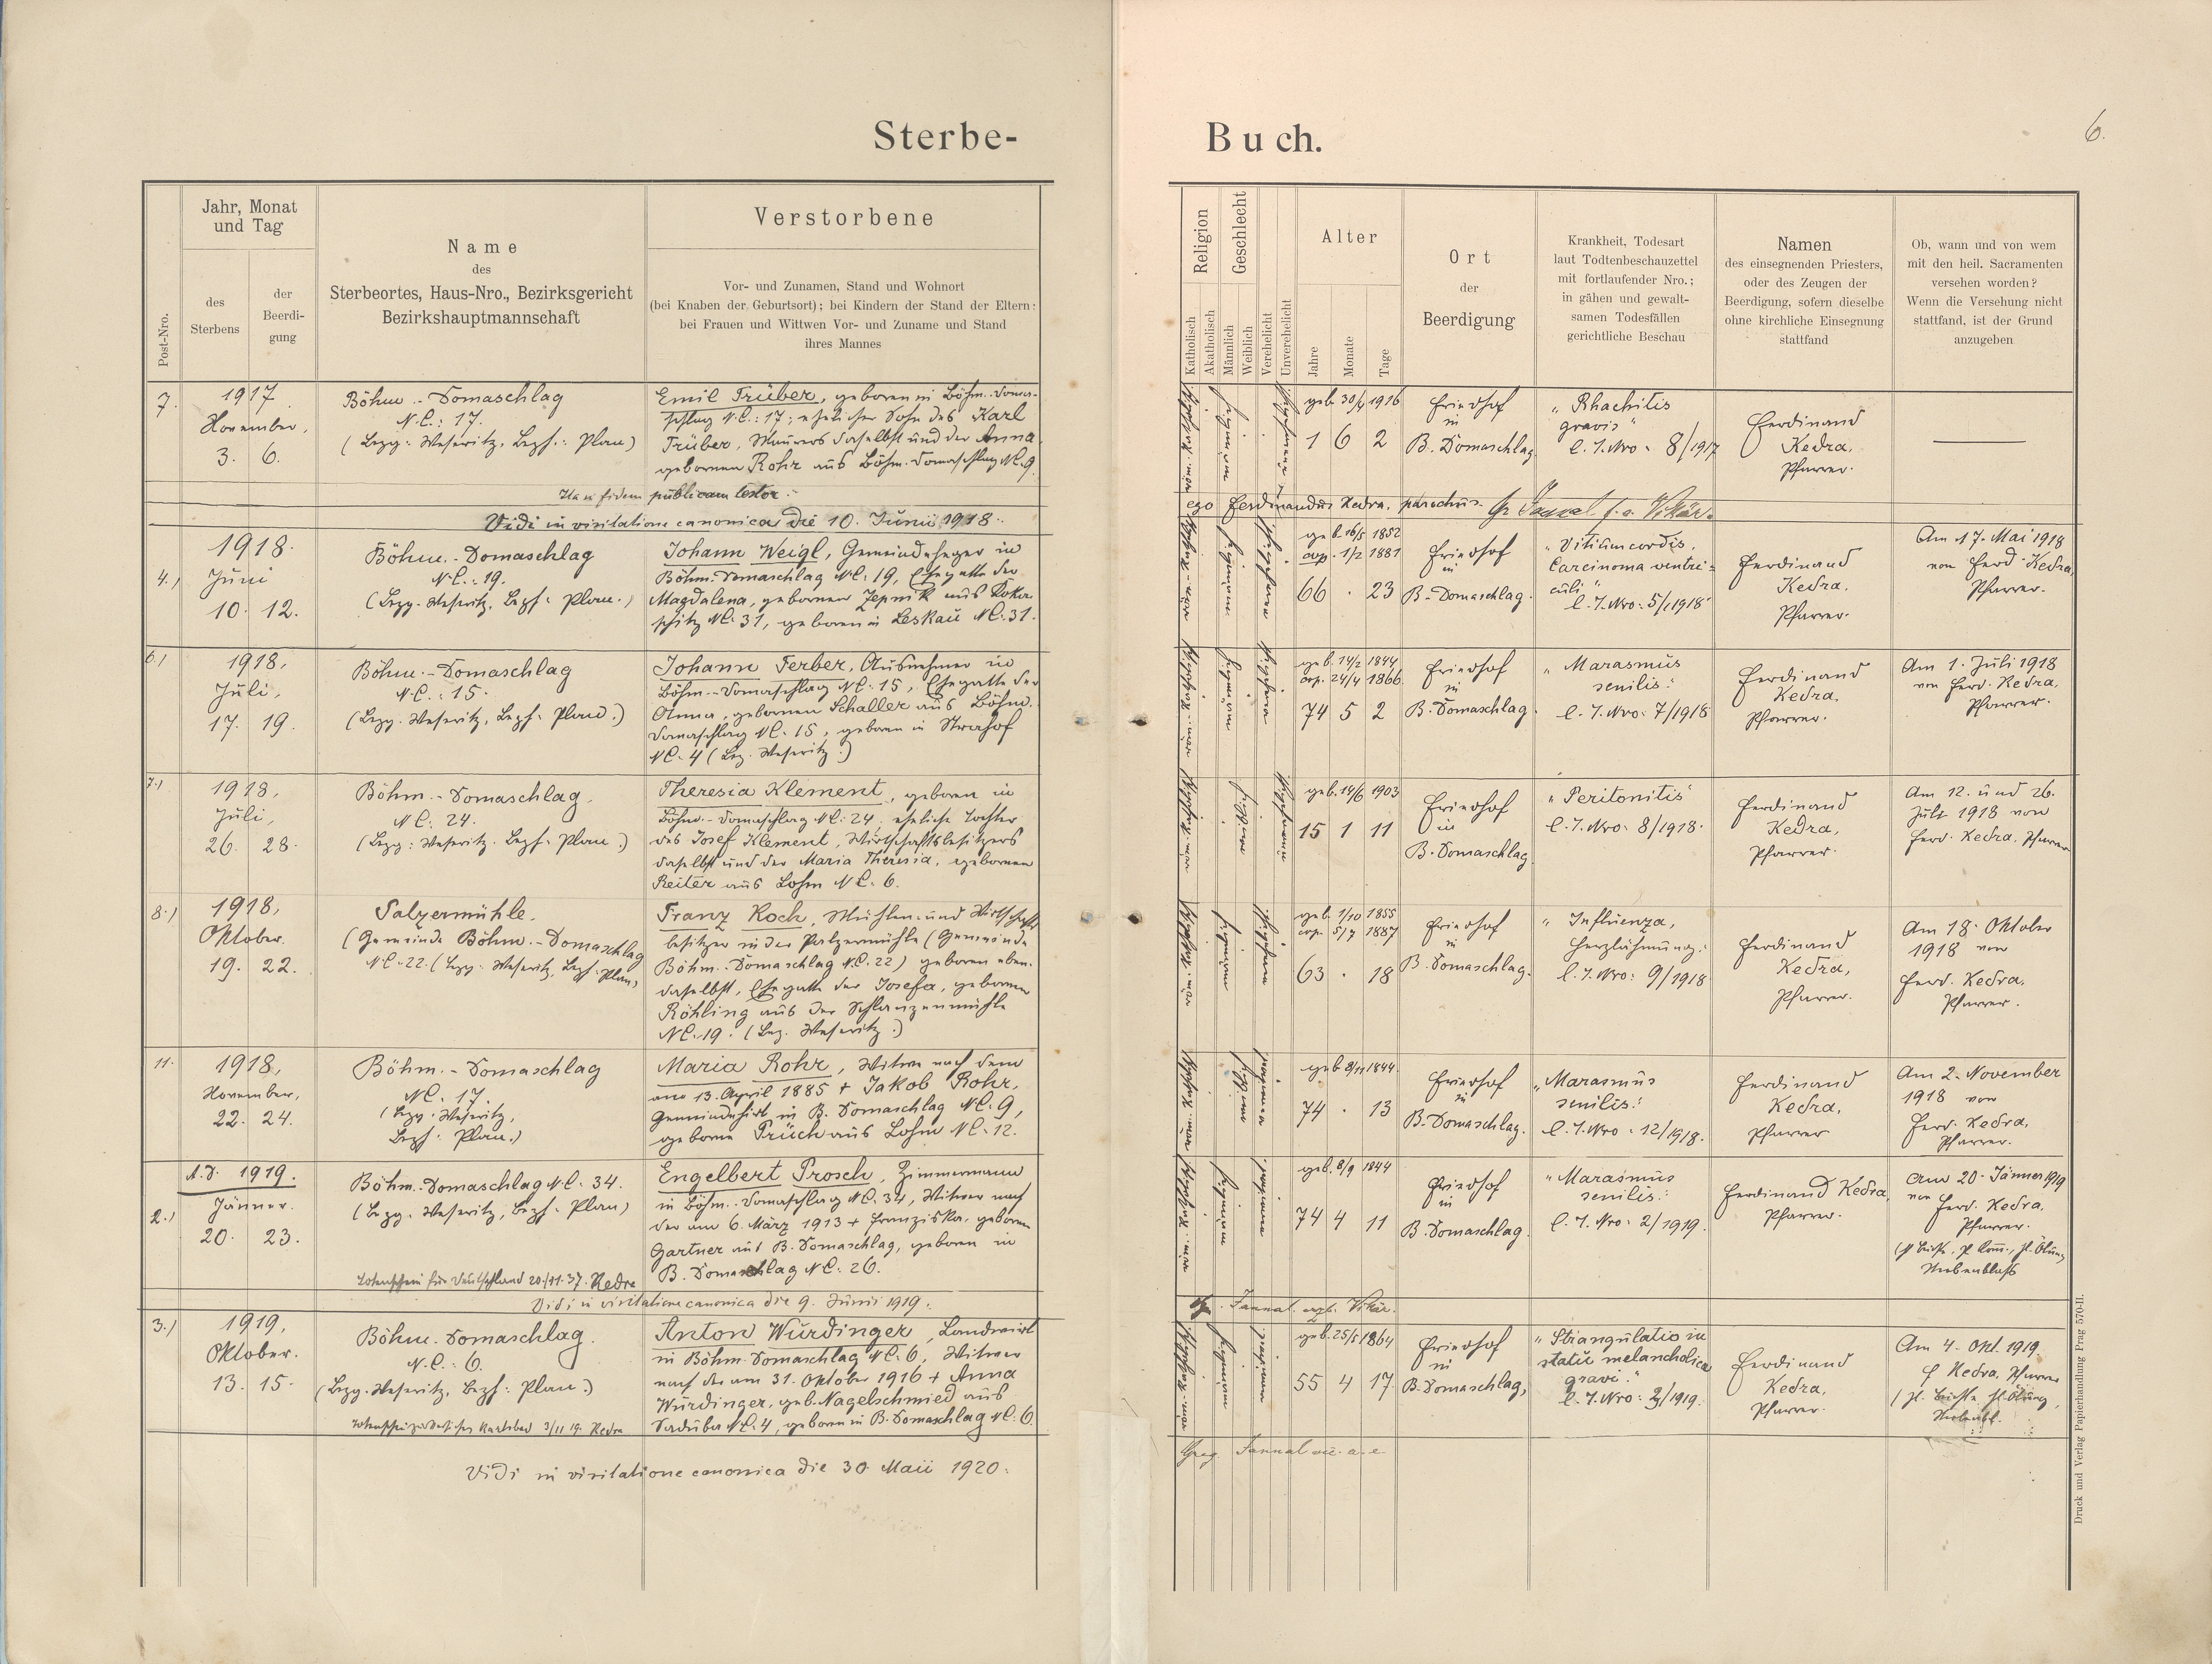 Sterbe-
Buch.
6.
Post-Nro.
Jahr, Monat
und Tag
des
Sterbens
der
Beerdi-
gung
Name
des
Sterbeortes, Haus-Nro., Bezirksgericht
Bezirkshauptmannschaft
Verstorbene
Vor- und Zunamen, Stand und Wohnort
(bei Knaben der Geburtsort); bei Kindern der Stand der Eltern:
bei Frauen und Wittwen Vor- und Zuname und Stand
ihres Mannes
Religion
Katholisch
Akatholisch
Geschlecht
Männlich
Weiblich
Verehelicht
Unverehelicht
Alter
Jahre
Monate
Tage
Ort
der
Beerdigung
Krankheit, Todesart
laut Todtenbeschauzettel
mit fortlaufender Nro.;
in gähen und gewalt-
samen Todesfällen
gerichtliche Beschau
Namen
des einsegnenden Priesters,
oder des Zeugen der
Beerdigung, sofern dieselbe
ohne kirchliche Einsegnung
stattfand
Ob, wann und von wem
mit den heil. Sacramenten
versehen worden?
Wenn die Versehung nicht
stattfand, ist der Grund
anzugeben
7.
1917
November,
3. 6.
Böhm.-Domaschlag
N.C.: 17.
(Bezg: Weseritz, Bezh.: Plan)
Emil Trüber, geboren in Böhm. Doma-
schlag N.C.: 17; ehelicher Sohn des Karl
Trüber, Maurers daselbst und der Anna
gebornen Rohr aus Böhm. Domaschlag N.C. 9.
geb. 30/4 1916
1 6 2
Friedhof
in
B. Domaschlag
"Rhachitis
gravis"
l. J. Nro. 8/1917
Ferdinand
Kedra,
Pfarrer.
Ita in fidem publicam testor
ego Ferdinandus Kedra, parochus.
Vidi in visitatione canonica die 10. Junii 1918.
4.)
1918.
Juni
10. 12.
Böhm.-Domaschlag
N.C.: 19.
(Bezg. Weseritz, Bezh: Plan.)
Johann Weigl, Gemeindeheger in
Böhm. Domaschlag N.C. 19, Ehegatte der
Magdalena, gebornen Zepnik aus Koka-
schitz N.C. 31, geboren in Leskau N.C. 31.
geb. 16/5 1852
cop. 1/2 1881
66 . 23
Friedhof
in
B. Domaschlag.
"Vitium cordis,
Carcinoma ventri-
culi"
l. J. Nro: 5/1918
Ferdinand
Kedra,
Pfarrer.
Am 17. Mai 1918
von Ferd. Kedra,
Pfarrer.
6.)
1918,
Juli,
17. 19.
Böhm.-Domaschlag
N.C.: 15.
(Bezg. Weseritz, Bezh: Plan.)
Johann Ferber, Ausnehmer in
Böhm.-Domaschlag N.C. 15, Ehegatte der
Anna, gebornen Schaller aus Böhm.
Domaschlag N.C. 15, geboren in Strahof
N.C. 4 (Bez. Weseritz.)
geb. 14/2 1844,
cop. 24/4 1866.
74 5 2
Friedhof
in
B. Domaschlag.
"Marasmus
senilis."
l. J. Nro: 7/1918
Ferdinand
Kedra,
Pfarrer.
Am 1. Juli 1918
von Ferd. Kedra,
Pfarrer.
7.)
1918,
Juli,
26. 28.
Böhm.-Domaschlag.
N.C. 24.
(Bezg: Weseritz. Bezh: Plan.)
Theresia Klement, geboren in
Böhm.-Domaschlag N.C. 24, eheliche Tochter
des Josef Klement, Wirtschaftsbesitzers
daselbst und der Maria Theresia, gebornen
Reiter aus Lohm N.C. 6.
geb. 14/6 1903
15 1 11
Friedhof
in
B. Domaschlag.
"Peritonitis"
l. J. Nro: 8/1918.
Ferdinand
Kedra,
Pfarrer.
Am 12. und 26.
Juli 1918 von
Ferd. Kedra, Pfarrer
8.)
1918,
Oktober.
19. 22.
(Gemeinde Böhm.-Domaschlag
N.C. 22. (Bezg: Weseritz, Bezh: Plan,
Franz Koch, Mühlen- und Wirtschafts-
besitzer in der (Gemeinde
Böhm.-Domaschlag N.C. 22) geboren eben-
daselbst, Ehegatte der Josefa, gebornen
Röhling aus der Schlanzenmühle
N.C. 19. (Bez. Weseritz.)
geb. 1/10 1855
cop. 5/7 1887
63 . 18
Friedhof
in
B. Domaschlag.
"Influenza,
Herzlähmung."
l. J. Nro: 9/1918
Ferdinand
Kedra,
Pfarrer.
Am 18. Oktober
1918 von
Ferd. Kedra,
Pfarrer.
11.
1918,
November,
22. 24.
Böhm.-Domaschlag
N.C. 17.
(Bezg. Weseritz,
Bezh: Plan.)
Maria Rohr, Witwe nach dem
am 13. April 1885 + Jakob Rohr,
Gemeindehirt in B. Domaschlag N.C. 9,
geborne Prüch aus Lohm N.C. 12.
geb. 9/11 1844.
74 . 13
Friedhof
in
B. Domaschlag.
"Marasmus
senilis."
l. J. Nro: 12/1918.
Ferdinand
Kedra,
Pfarrer
Am 2. November
1918 von
Ferd. Kedra,
Pfarrer.
A.D. 1919.
2.)
Jänner.
20. 23.
Böhm.-Domaschlag N.C. 34.
(Bezg. Weseritz, Bezh: Plan)
Totenschein für Deutschland 20/11. 37. Kedra
Engelbert Prosch, Zimmermann
in Böhm.-Domaschlag N.C. 34, Witwer nach
der am 6. März 1913 + Franziska, gebornen
Gartner aus B. Domaschlag, geboren in
B. Domaschlag N.C. 26.
geb. 8/9 1844
74 4 11
Friedhof
in
B. Domaschlag.
"Marasmus
senilis."
l. J. Nro: 2/1919.
Ferdinand Kedra,
Pfarrer.
Am 20. Jänner 1919
von Ferd. Kedra,
Pfarrer.
Vidi in visitatione canonica die 9. Junii 1919.
3.)
1919,
Oktober.
13. 15.
Böhm. Domaschlag.
N.C.: 6.
(Bezg. Weseritz, Bezh: Plan.)
Anton Würdinger, Landwirt
in Böhm. Domaschlag N.C. 6, Witwer
nach der am 31. Oktober 1916 + Anna
Würdinger, geb. Nagelschmied aus
N.C. 4, geboren in B. Domaschlag N.C. 6.
geb. 25/5 1864
55 4 17
Friedhof
in
B. Domaschlag,
"Strangulatio in
statu melancholico
gravi."
l. J. Nro: 3/1919.
Ferdinand
Kedra,
Pfarrer.
Am 4. Okt. 1919.
F Kedra, Pfarrer
Vidi in visitatione canonica die 30. Maii 1920.
Druck und Verlag Papierhandlung Prag 570-II.